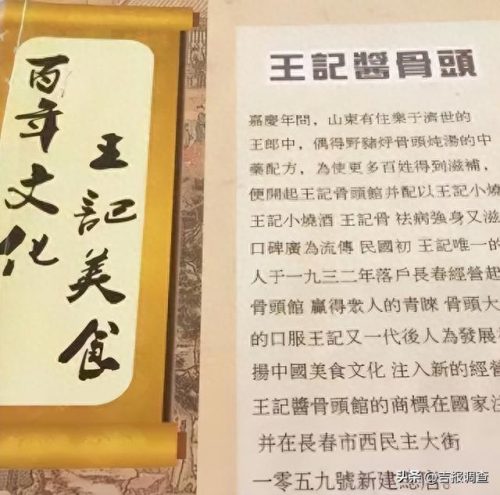 百年文化
王記美食
王記醬骨頭
嘉慶年間,山東有住樂于濟世的
王郎中,偶得野豬
骨頭炖湯的中
藥配方,為使更多百姓得到滋補,
便開起王記骨頭館并配以王記小燒
王記小燒酒 王記骨 祛病強身又滋
口碑廣為流傳 民國初 王記唯一的
人于一九三二年落戶長春經營起
骨頭館 贏得衆人的青睞 骨頭大
的口服王記又一代後人為發展
揚中國美食文化 注入新的經營
王記醬骨頭館的商標在國家注
并在長春市西民主大街
一零五九號新建總店。
头条 @吉报调查